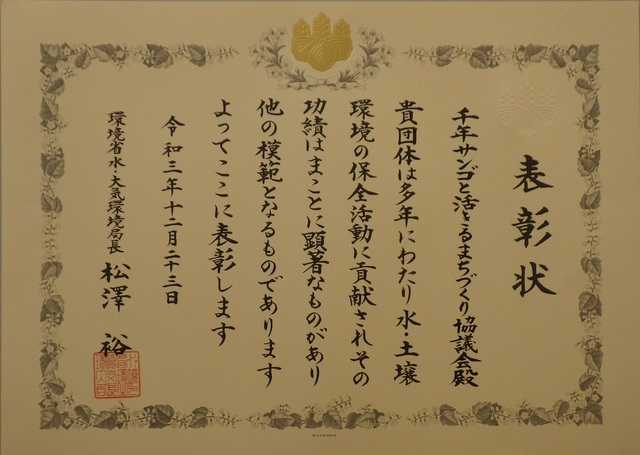 表彰状
千年サンゴと活きるまちづくり協議会殿
貴団体は多年にわたり水・土壌
環境の保全活動に貢献されその
功績はまことに顕著なものがあり
他の模範となるものであります
よってここに表彰します
令和三年十二月二十三日
環境省水・大気環境局長 松澤 裕